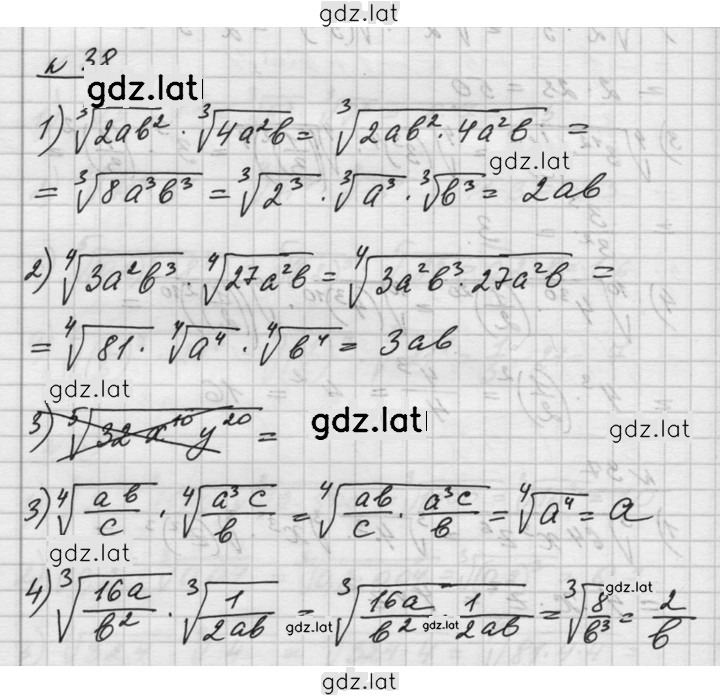 gdz.lat
№ 38
gdz.lat
1) ∛(2ab²) · ∛(4a²b) = ∛(2ab² · 4a²b) =
gdz.lat
= ∛(8a³b³) = ∛(2³) · ∛(a³) · ∛(b³) = 2ab
2) ∜(3a²b³) · ∜(27a²b) = ∜(3a²b³ · 27a²b) =
= ∜81 · ∜(a⁴) · ∜(b⁴) = 3ab
gdz.lat
3) ⁵√(32x¹⁰y²⁰) =
gdz.lat
gdz.lat
3) ∜(ab/c) · ∜(a³c/b) = ∜(ab/c · a³c/b) = ∜(a⁴) = a
gdz.lat
4) ∛(16a/b²) · ∛(1/2ab) = ∛(16a/b² · 1/2ab) = ∛(8/b³) = 2/b
gdz.lat
gdz.lat
gdz.lat
gdz.lat